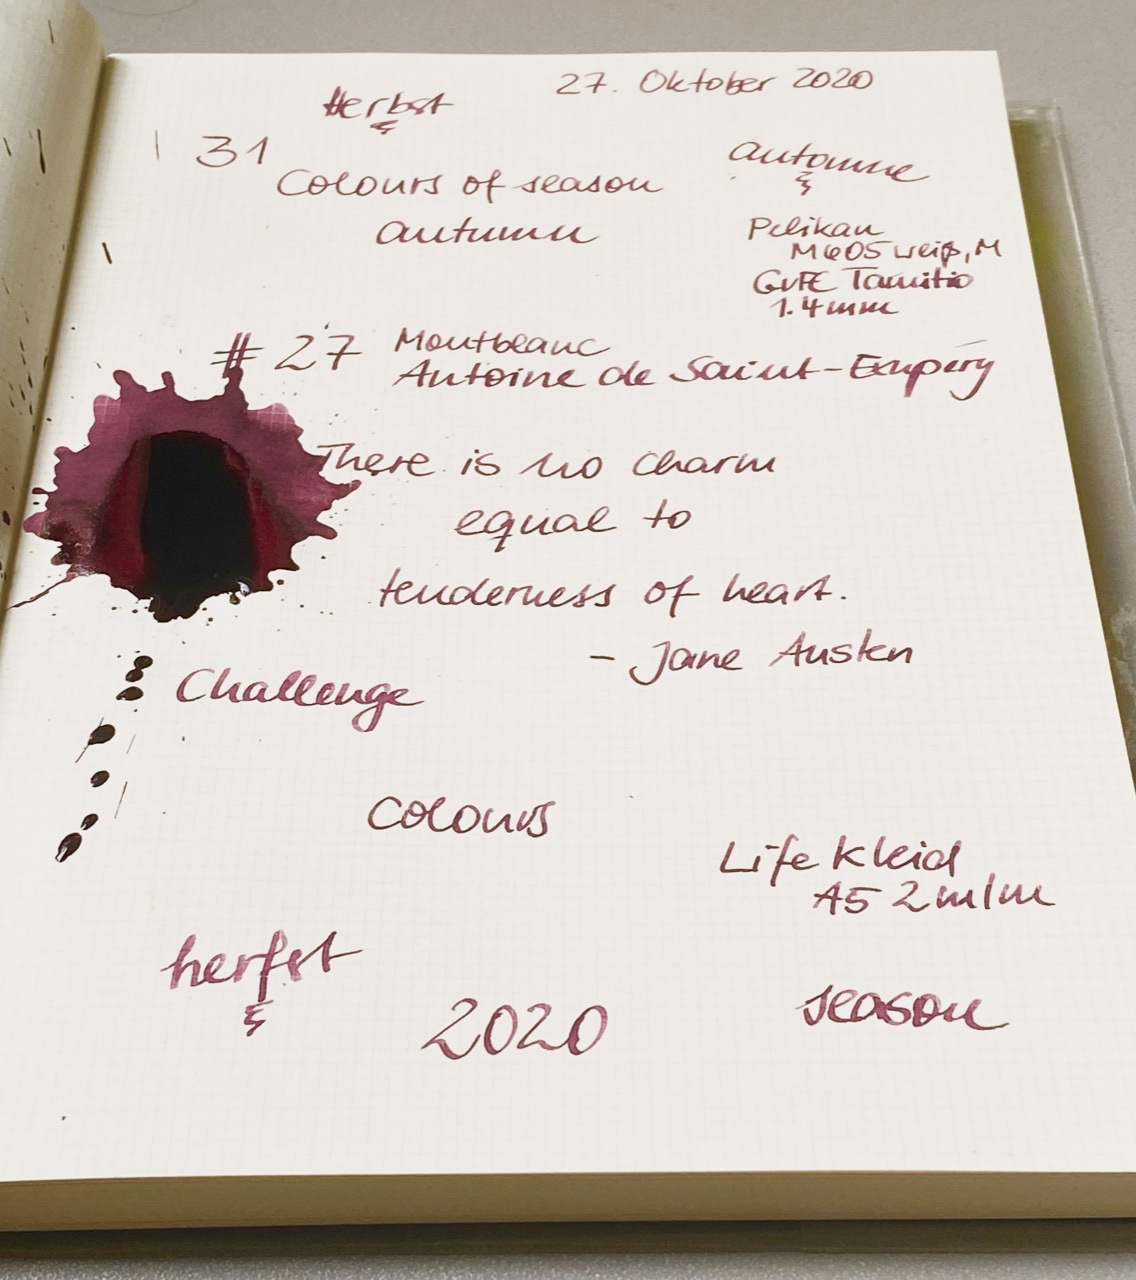 27. Oktober 2020
Herbst
31
Colours of season
autumn
automne
Pelikan
M605 weiß, M
GvFC Tamitio
1.4mm
#27 Montblanc
Antoine de Saint-Exupéry
There is no charm
equal to
tenderness of heart.
- Jane Austen
Challenge
Colours
Life Kleid
A5 2m/m
herfst
2020
season